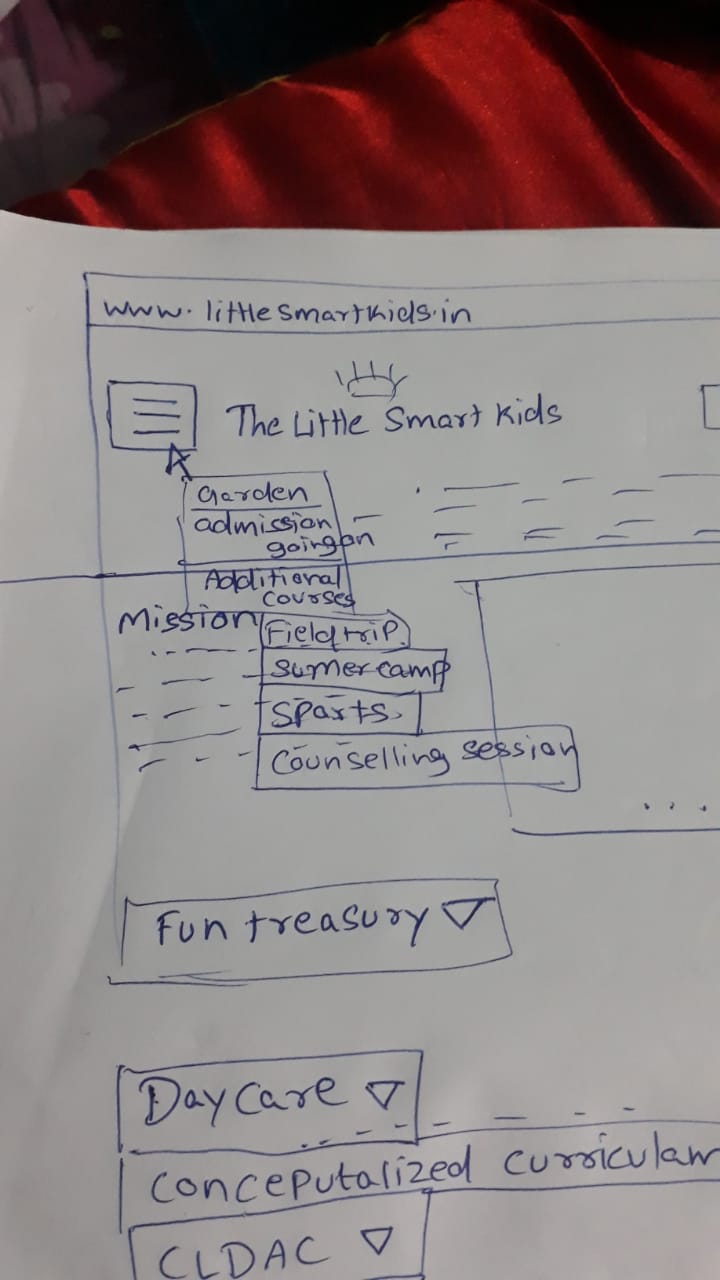 www.littlesmartkids.in
The Little Smart Kids
Garden
admission
going on
Additional
courses
Mission
Fieldtrip
sumer camp
Sparts.
Counselling session
Fun treasury
Day care
conceputalized curriculam
CLDAC